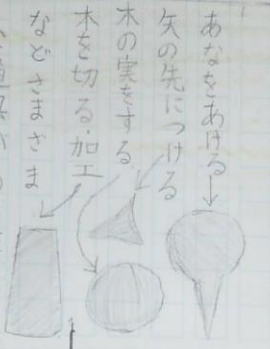 あなをあける
矢の先につける
木の実をする
木を切る・加工
などさまざま